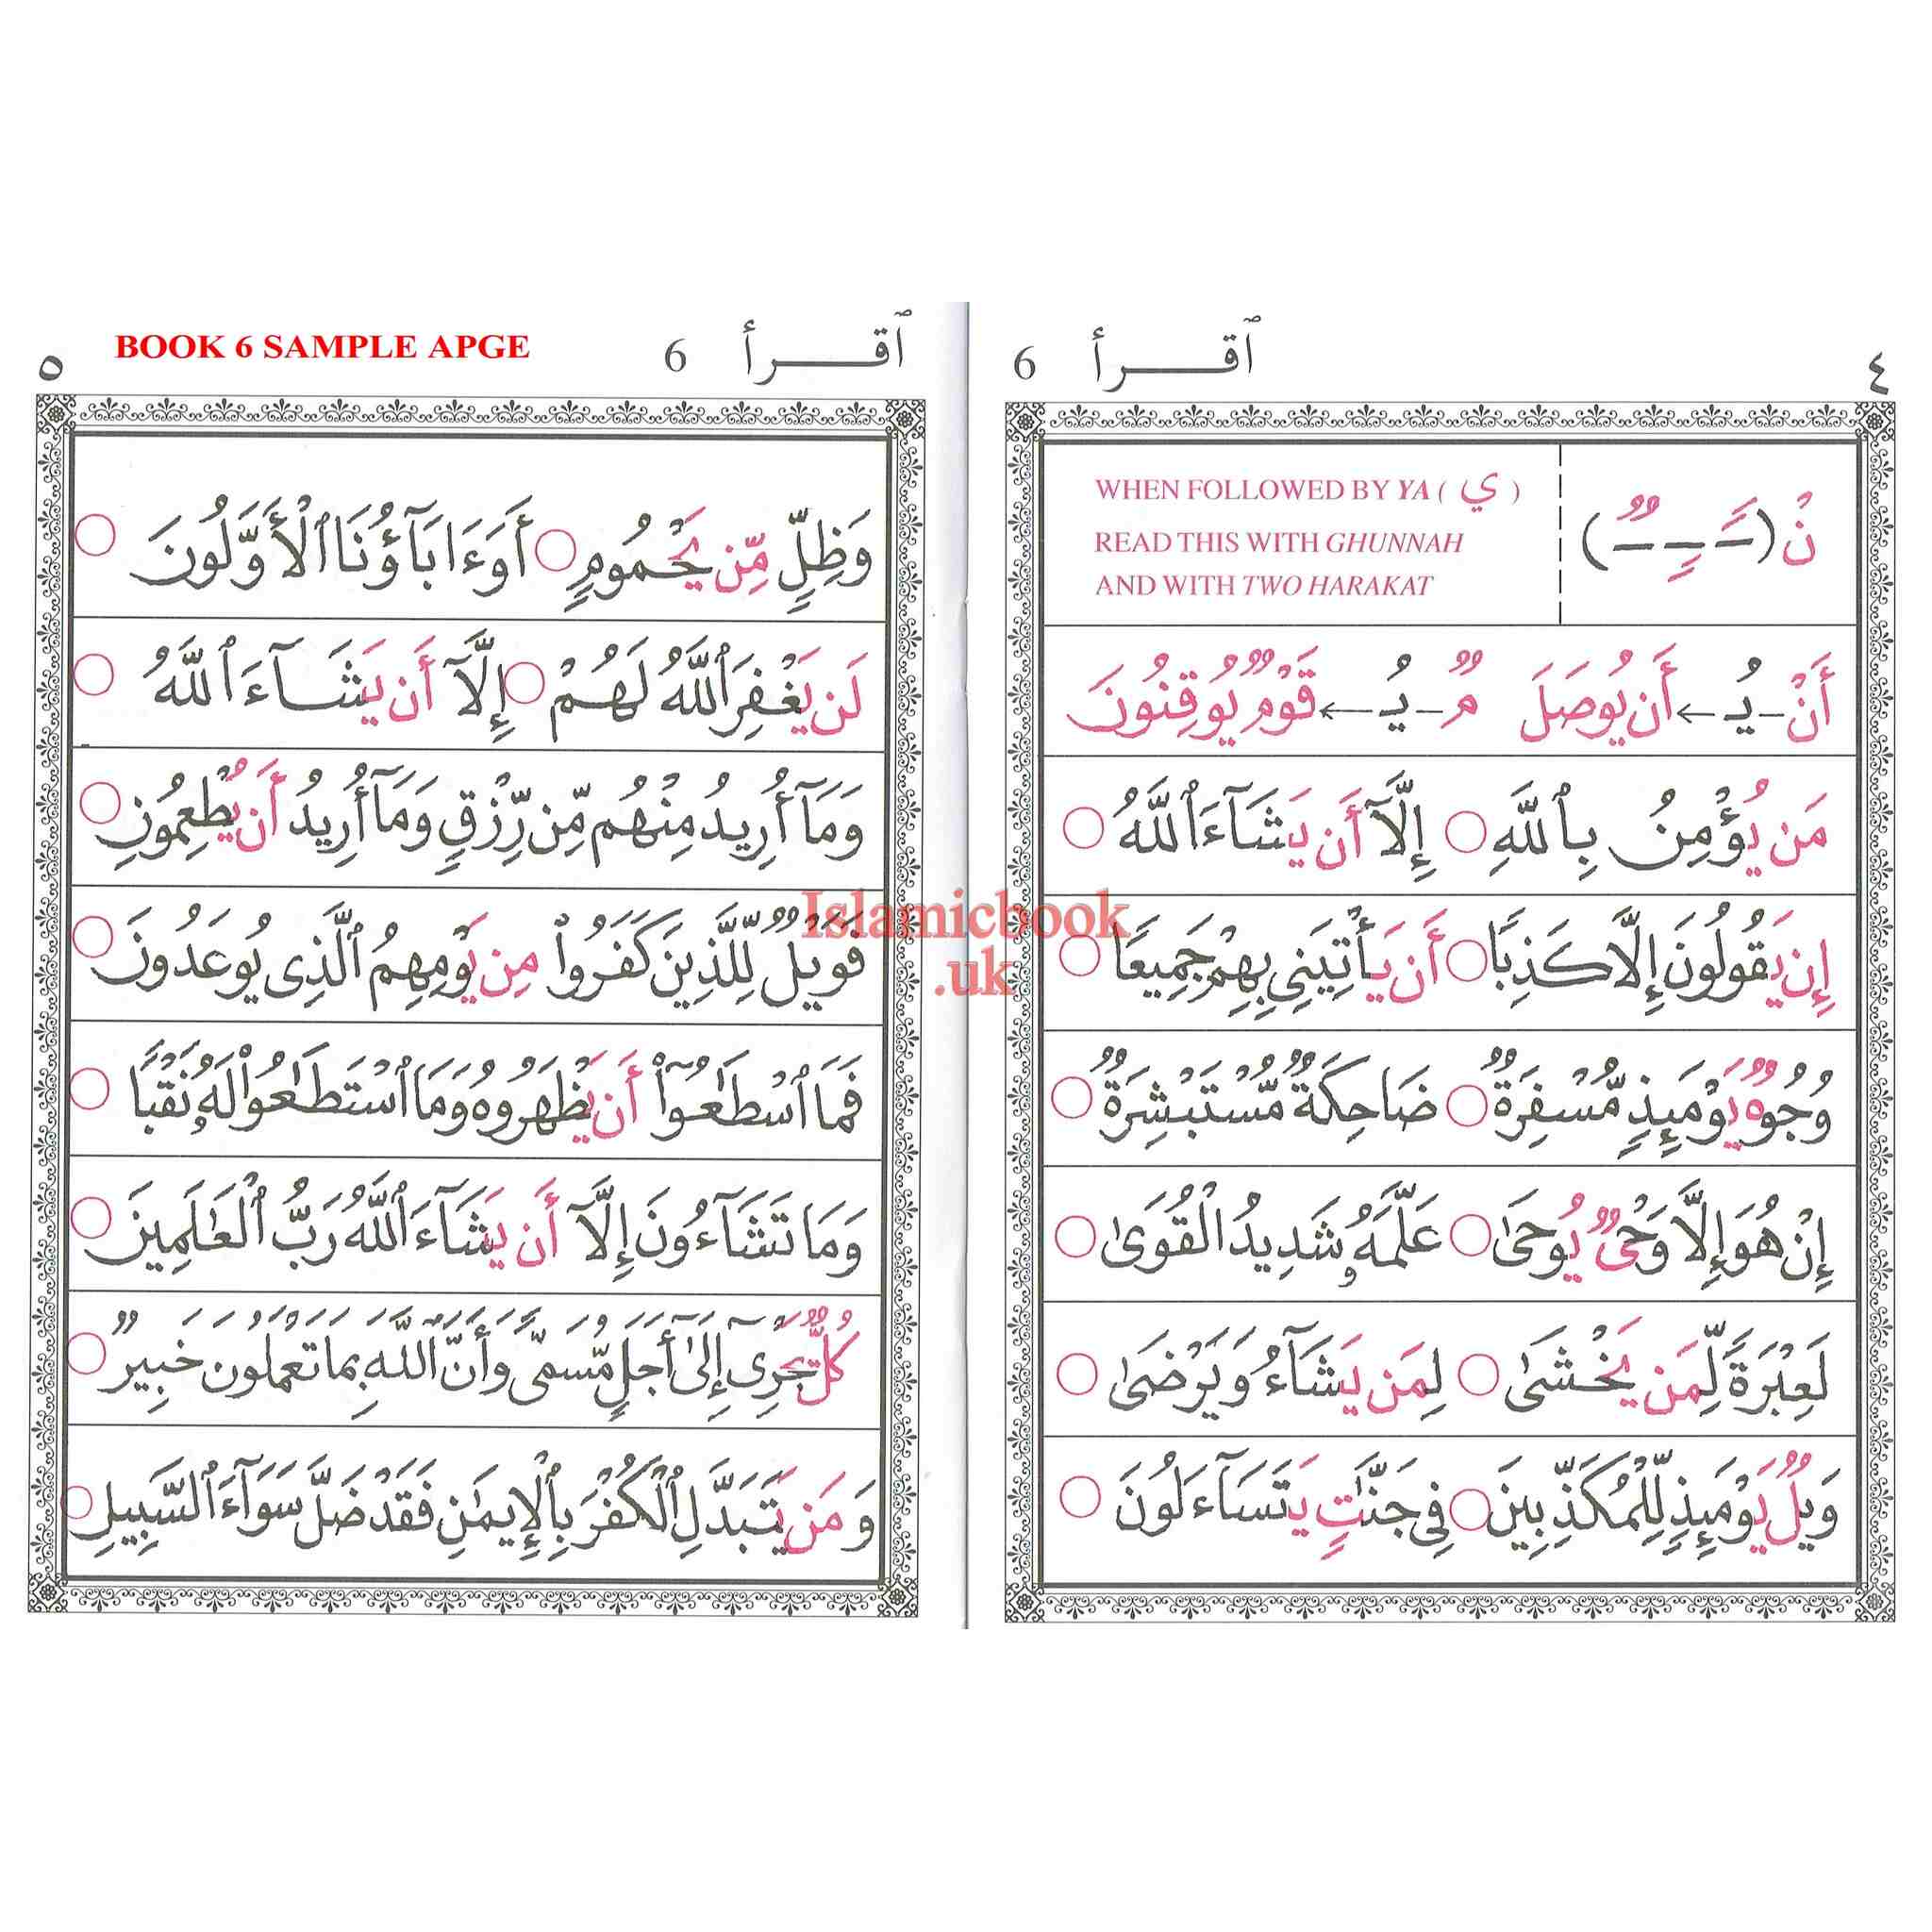 ٱقرأ 6 ٤
نْ (ـًـ ـٍـ ـٌـ)
WHEN FOLLOWED BY YA ( ي )
READ THIS WITH GHUNNAH
AND WITH TWO HARAKAT
أَنْ - يُـ ← أَن يُوصَلَ مٌ - يُـ ← قَوْمٌ يُوقِنُونَ
مَن يُؤْمِنُ بِاللَّهِ ○ إِلَّآ أَن يَشَآءَ ٱللَّهُ ○
إِن يَقُولُونَ إِلَّا كَذِبًا ○ أَن يَأْتِيَنِى بِهِمْ جَمِيعًا ○
وُجُوهٌ يَوْمَئِذٍ مُّسْفِرَةٌ ○ ضَاحِكَةٌ مُّسْتَبْشِرَةٌ ○
إِنْ هُوَ إِلَّا وَحْىٌ يُوحَىٰ ○ عَلَّمَهُۥ شَدِيدُ الْقُوَىٰ ○
لَعِبْرَةً لِّمَن يَخْشَىٰ ○ لِمَن يَشَآءُ وَيَرْضَىٰ ○
وَيْلٌ يَوْمَئِذٍ لِّلْمُكَذِّبِينَ ○ فِى جَنَّٰتٍ يَتَسَآءَلُونَ ○
BOOK 6 SAMPLE APGE
ٱقرأ 6 ٥
وَظِلٍّ مِّن يَحْمُومٍ ○ أَوَءَابَآؤُنَا ٱلْأَوَّلُونَ ○
لَن يَغْفِرَ ٱللَّهُ لَهُمْ ○ إِلَّآ أَن يَشَآءَ ٱللَّهُ ○
وَمَآ أُرِيدُ مِنْهُم مِّن رِّزْقٍ وَمَآ أُرِيدُ أَن يُطْعِمُونِ ○
فَوَيْلٌ لِّلَّذِينَ كَفَرُوا۟ مِن يَوْمِهِمُ ٱلَّذِى يُوعَدُونَ ○
فَمَا ٱسْطَٰعُوٓا۟ أَن يَظْهَرُوهُ وَمَا ٱسْتَطَٰعُوا۟ لَهُۥ نَقْبًا ○
وَمَا تَشَآءُونَ إِلَّآ أَن يَشَآءَ ٱللَّهُ رَبُّ ٱلْعَٰلَمِينَ ○
كُلٌّ يَجْرِىٓ إِلَىٰٓ أَجَلٍ مُّسَمًّى وَأَنَّ ٱللَّهَ بِمَا تَعْمَلُونَ خَبِيرٌ ○
وَمَن يَتَبَدَّلِ ٱلْكُفْرَ بِٱلْإِيمَٰنِ فَقَدْ ضَلَّ سَوَآءَ ٱلسَّبِيلِ ○
Islamicbook
.uk